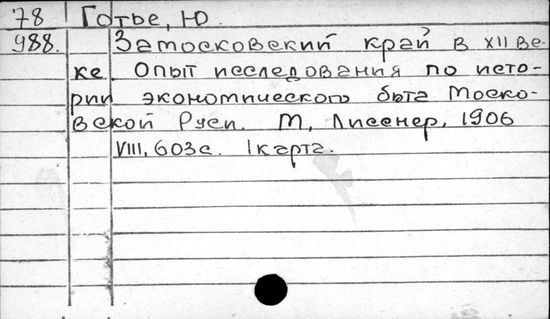 78 Готье, Ю.
988. Замосковский край в XII ве-
ке. Опыт исследования по исто-
рии экономического быта Моско-
вской Руси. М, Лисснер, 1906
VIII, 603с. 1карта.